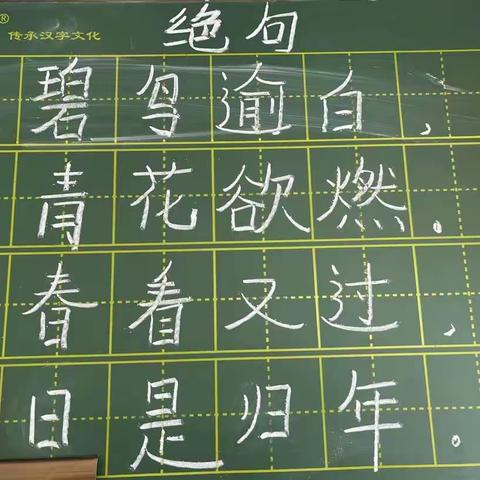 ® 传承汉字文化
绝句
碧鸟逾白，
青花欲燃。
春看又过，
日是归年。